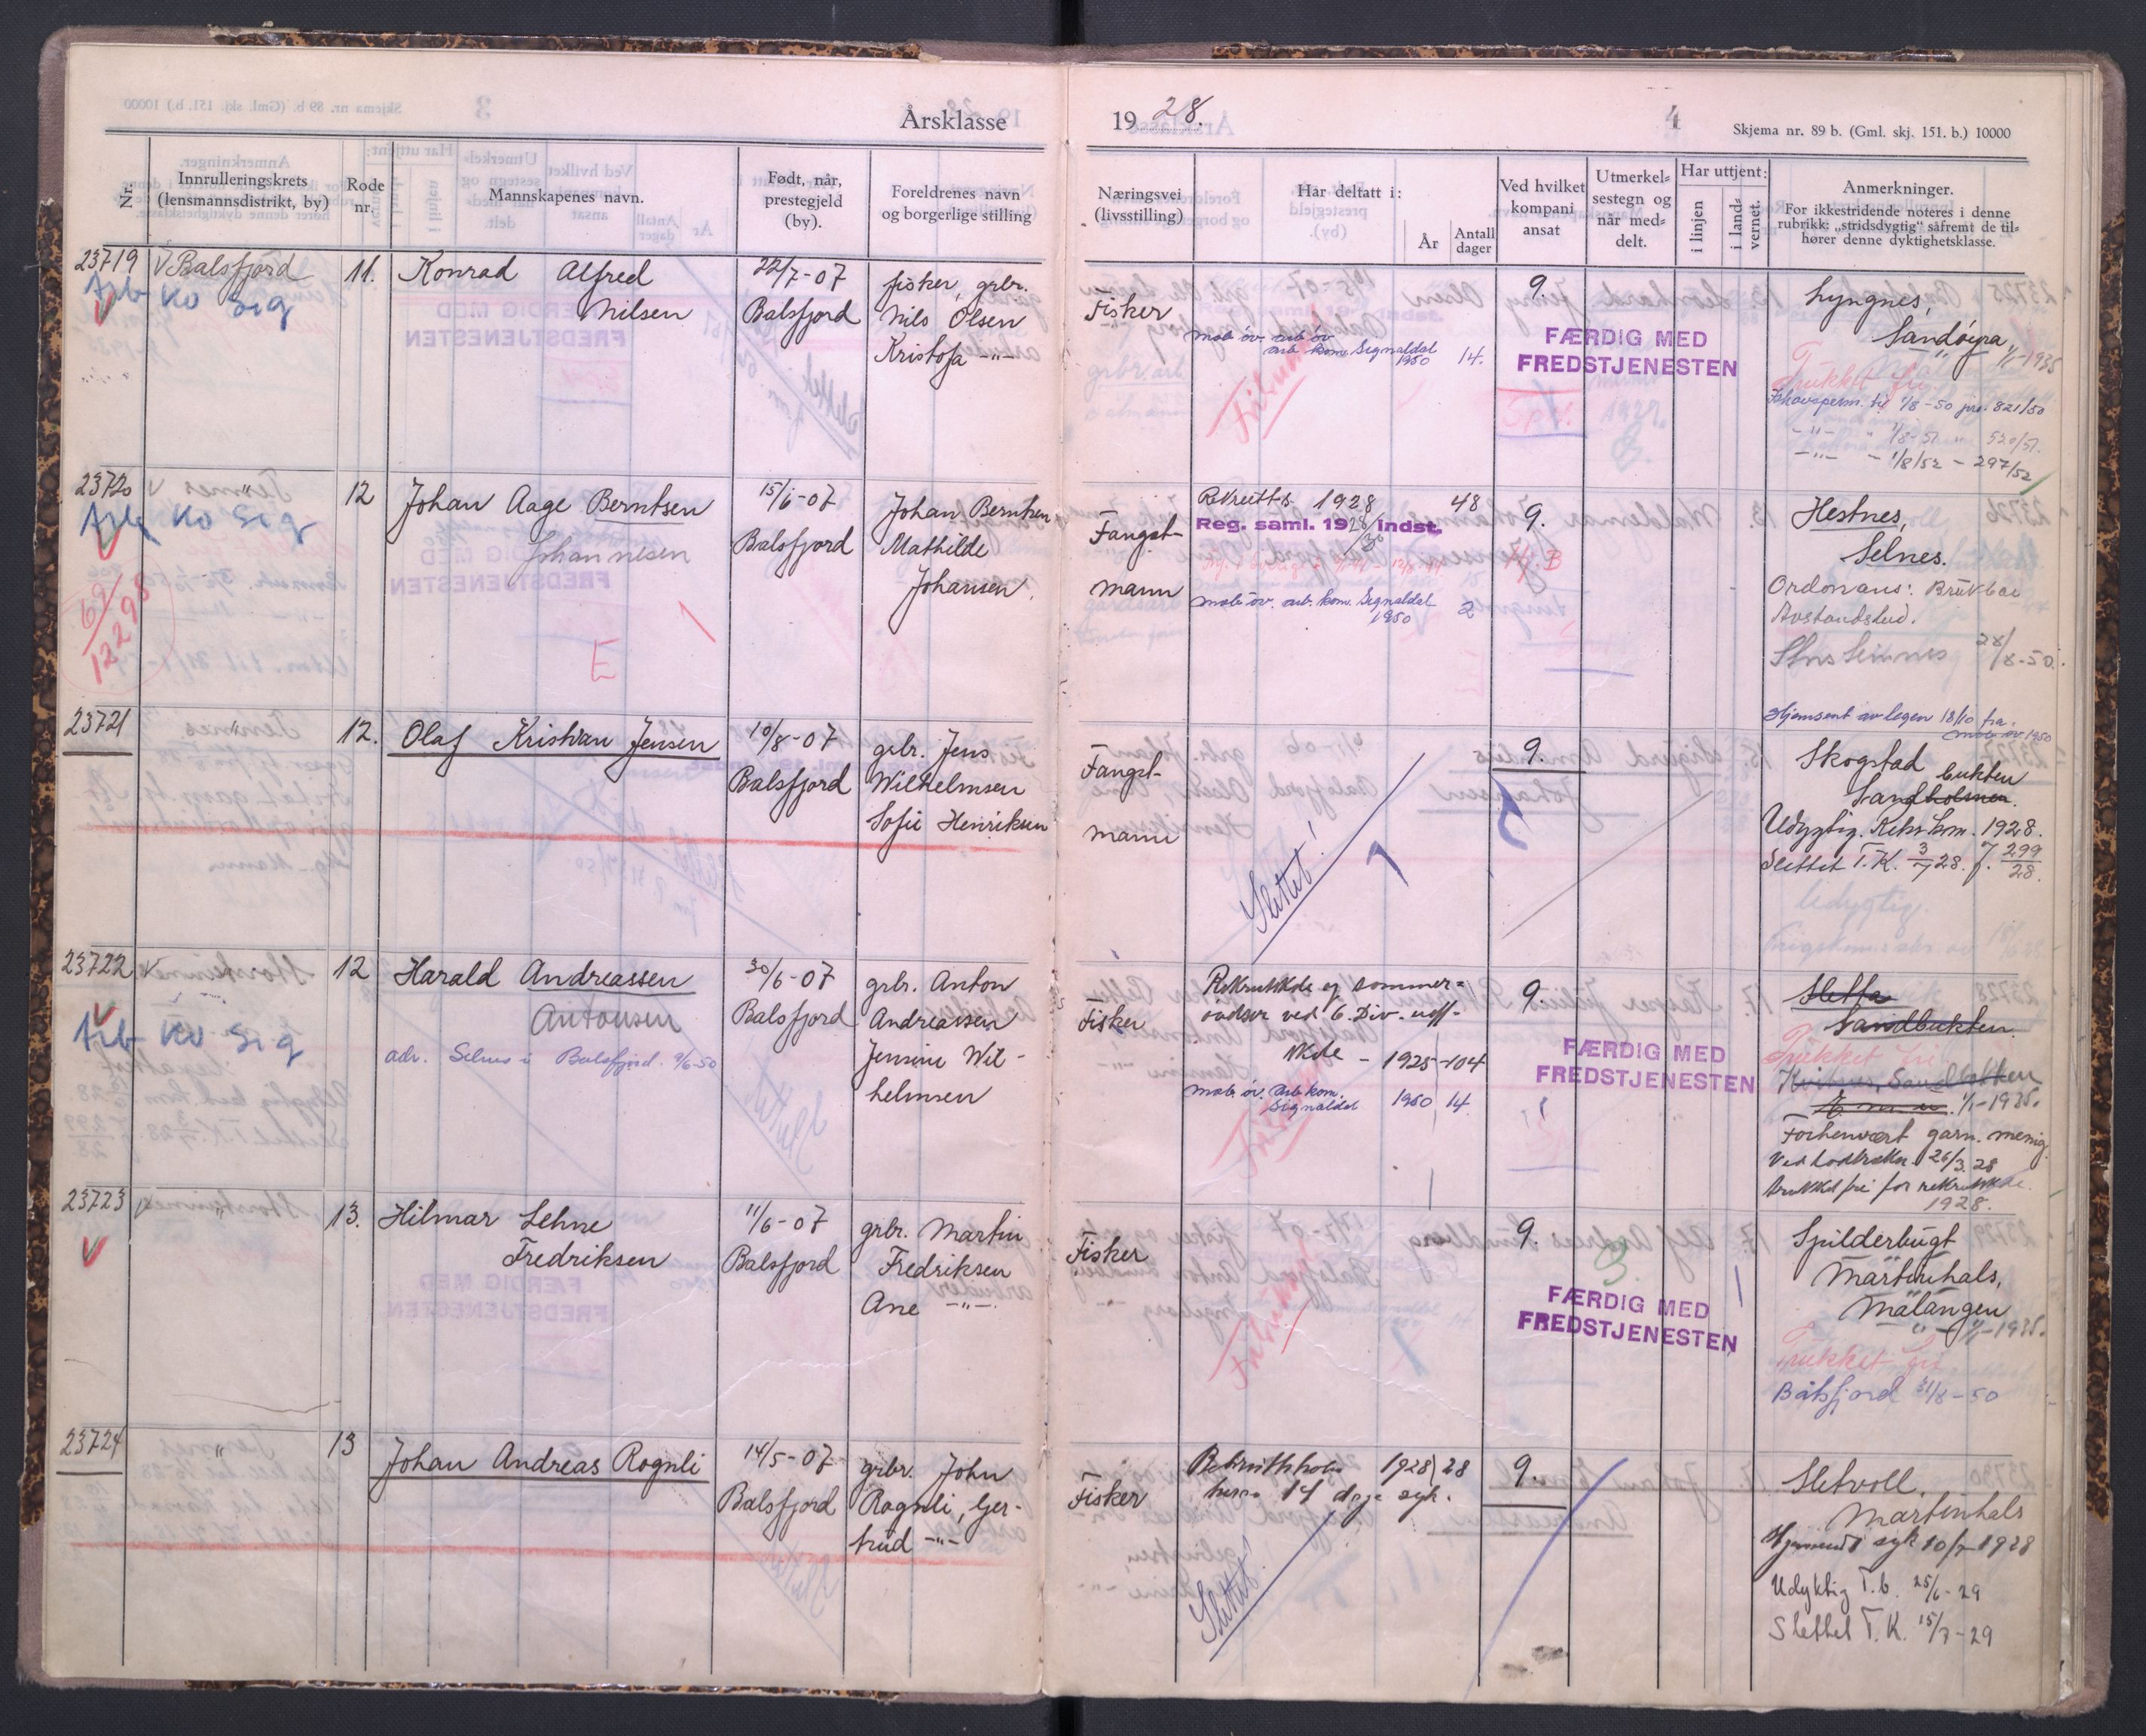 Årsklasse
1928.
4
Skjema nr. 89 b. (Gml. skj. 151. b.) 10000
Nr.
Innrulleringskrets
(lensmannsdistrikt, by)
Rode
nr.
Mannskapenes navn.
Født, når,
prestegjeld
(by).
Foreldrenes navn
og borgerlige stilling
Næringsvei
(livsstilling)
Har deltatt i:
År
Antall
dager
Ved hvilket
kompani
ansat
Utmerkel=
sestegn og
når med=
delt.
Har uttjent:
i linjen
i land=
vernet.
Anmerkninger.
For ikkestridende noteres i denne
rubrikk: „stridsdygtig" såfremt de til=
hører denne dyktighetsklasse.
23719
Balsfjord
Arb Ko Sig
11.
Konrad Alfred
Nilsen
22/7-07
Balsfjord
fisker, grbr.
Nils Olsen
Kristofa -"-
Fisker
mob. øv. arb. kom. Signaldal
1950 14.
Frilodd
9.
FÆRDIG MED
FREDSTJENESTEN
Lyngnes,
Sandøyra 1/1-1935
Trukket fri
til 1/8-50 jnr. 821/50
-"- " 1/8-51 " 530/51.
-"- - 1/8/52 - 297/52
23720
"
Arb Ko Sig
69/12298
12
Johan Aage Berntsen
Johannesen
E
15/6-07
Balsfjord
Johan Berntsen
Mathilde
Johansen.
Fangst-
mann
Rekrutts. 1928 48
Reg. saml. 1928/36 indst.
mob. øv. arb. kom. Signaldal
1950 2
9.
Hestnes,
Selnes.
Ordonans:
Avstandsbed.
28/8-50.
23721
"
12.
Olaf Kristian Jensen
10/8-07
Balsfjord
grbr. Jens
Wilhelmsen
Sofie Henriksen
Fangst-
mann
Slettet!
9.
Hjemsent av legen 18/10 fra
mob. øv 1950
Skogstad
bukten
Sandholmen.
Udygtig. Kekr. kom. 1928.
Slettet T.K. 3/7 28. J. 299/28.
23722
Storsteinnes
Arb Ko Sig
12
Harald Andreassen
Antonsen
adr. Selnes i Balsfjord. 9/6-50
30/6-07
Balsfjord
grbr. Anton
Andreassen
Jensine Wil-
helmsen
Fisker
Rekrutskole og sommer=
øvelser ved 6. Div. uoff-
skole - 1925-104
mob. øv. arb. kom.
Signaldal 1950 14.
9.
FÆRDIG MED
FREDSTJENESTEN
Sletta
Sandbukten
Trukket fri
1/1-1935.
Forhenvært garn. menig
Ved lodtrekn. 26/3.28
trukket fri for rekrutskole
1928.
23723
"
13.
Hilmar Lehne
Fredriksen
11/6-07
Balsfjord
grbr. Martin
Fredriksen
Ane -"-
Fisker
9.
FÆRDIG MED
FREDSTJENESTEN
Spilderbugt
Martinhals,
Malangen
" - 1/1-1935.
Trukket fri
Balsfjord 31/8-50
23724
"
13
Johan Andreas Rognli
14/5-07
Balsfjord
grbr. John
Rognli, Ger-
trud -"-
Fisker
Rekruttskole 1928 28
herav 14 dage syk.
Slettet!
9.
Sletvoll,
Martinhals
Hjemsendt syk 10/7-1928
Udyktig T.b. 25/6-29
Slettet T.K. 15/7-29